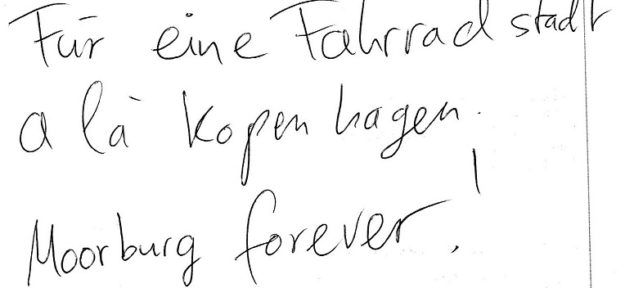 Für eine Fahrradstadt
a là Kopenhagen.
Moorburg forever!